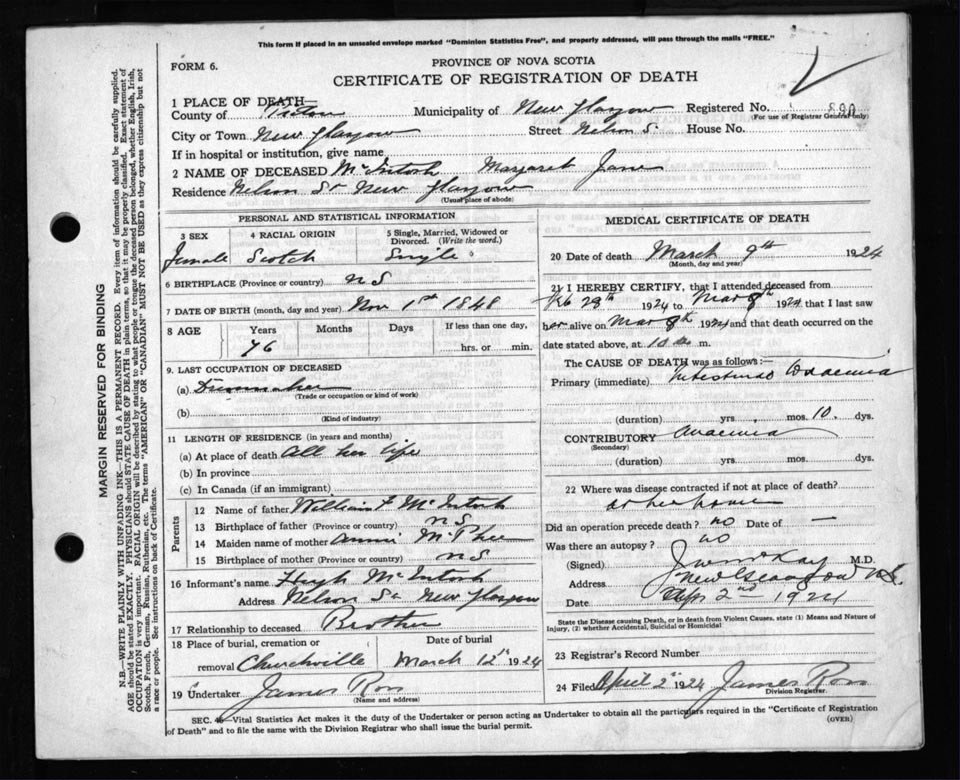 This form if placed in an unsealed envelope marked "Dominion Statistics Free", and properly addressed, will pass through the mails "FREE."
FORM 6.
PROVINCE OF NOVA SCOTIA
CERTIFICATE OF REGISTRATION OF DEATH
1 PLACE OF DEATH—
County of Pictou Municipality of New Glasgow Registered No.
(For use of Registrar General only)
City or Town New Glasgow Street Nelson S. House No.
If in hospital or institution, give name
2 NAME OF DECEASED McIntosh Margaret Jane
Residence Nelson St New Glasgow
(Usual place of abode)
PERSONAL AND STATISTICAL INFORMATION
3 SEX 4 RACIAL ORIGIN 5 Single, Married, Widowed or Divorced. (Write the word.)
Female Scotch Single
6 BIRTHPLACE (Province or country) N S
7 DATE OF BIRTH (month, day and year) Nov 1st 1848
8 AGE Years Months Days If less than one day,
76 hrs. or min.
9. LAST OCCUPATION OF DECEASED
(a)
(Trade or occupation or kind of work)
(b)
(Kind of industry)
11 LENGTH OF RESIDENCE (in years and months)
(a) At place of death All her life
(b) In province
(c) In Canada (if an immigrant)
Parents
12 Name of father William F McIntosh
13 Birthplace of father (Province or country) N S
14 Maiden name of mother Annie McPhee
15 Birthplace of mother (Province or country) N S
16 Informant's name Hugh McIntosh
Address Nelson St New Glasgow
17 Relationship to deceased Brother
18 Place of burial, cremation or Date of burial
removal Churchville March 12th 1924
19 Undertaker James Ross
(Name and address)
MEDICAL CERTIFICATE OF DEATH
20 Date of death March 9th 1924
(Month, day and year)
21 I HEREBY CERTIFY, that I attended deceased from
Feb 28th 1924 to Mar 8th 1924 that I last saw
her alive on Mar 8th 1924 and that death occurred on the
date stated above, at 10 a m.
The CAUSE OF DEATH was as follows:—
Primary (immediate) Intestinal
(duration) yrs. mos. 10 dys.
CONTRIBUTORY Anaemia
(Secondary)
(duration) yrs. mos. dys.
22 Where was disease contracted if not at place of death?
at her home
Did an operation precede death? no Date of —
Was there an autopsy? no
(Signed) M.D.
Address New Glasgow N.S.
Date Apr 2nd 1924
State the Disease causing Death, or in death from Violent Causes, state (1) Means and Nature of
Injury, (2) whether Accidental, Suicidal or Homicidal
23 Registrar's Record Number
24 Filed April 2nd 1924 James Ross
Division Registrar.
SEC. —Vital Statistics Act makes it the duty of the Undertaker or person acting as Undertaker to obtain all the particulars required in the "Certificate of Registration
of Death" and to file the same with the Division Registrar who shall issue the burial permit.
(OVER)
MARGIN RESERVED FOR BINDING
N.B.—WRITE PLAINLY WITH UNFADING INK—THIS IS A PERMANENT RECORD. Every item of information should be carefully supplied.
AGE should be stated EXACTLY. PHYSICIANS should STATE CAUSE OF DEATH in plain terms, so that it may be properly classified. Exact statement of
OCCUPATION is very important. RACIAL ORIGIN will be described by stating to what people or tongue the deceased person belonged, whether English, Irish,
Scotch, French, German, Russian, Ruthenian, etc. The terms "AMERICAN" OR "CANADIAN" MUST NOT BE USED as they express citizenship but not
a race or people. See instructions on back of Certificate.